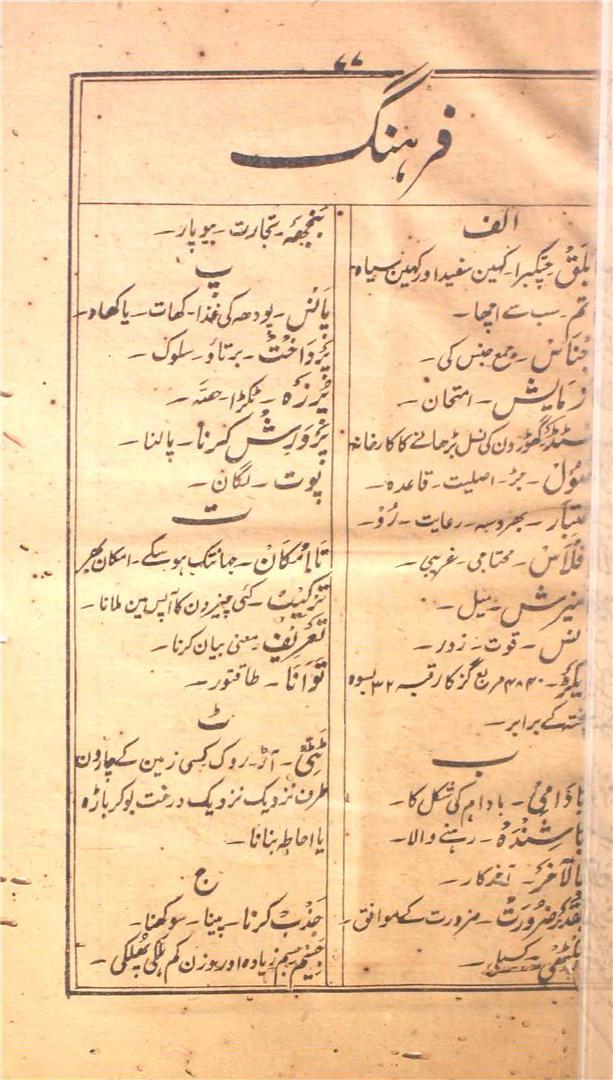 ۷۷
فرہنگ
الف
چتکبرا۔ کہین سفیداورکہین سیاہ۔
سب سے اچھا۔
جمع جنس کی۔
امتحان۔
گھوڑون کی نسل بڑھانے کا کارخانہ
جڑ۔ اصلیت۔ قاعدہ۔
بھروسہ۔ رعایت۔ رُوْ۔
محتاجی۔ غریبی۔
میل۔
قوت۔ زور۔
۴۸۴۰ مربع گز کا رقبہ ۳۲ بسوہ
پختہ کے برابر۔
ب
بادَامِیْ۔ بادام کی شکل کا۔
باشِنْدَہْ۔ رہنے والا۔
بالآخر۔ آخرکار۔
بقَدرِضَرُورَتْ۔ ضرورت کے موافق۔
بَنجھِہ۔ تجارت۔ بیوپار۔
پ
پانس۔ پودھہ کی غذا۔ کھات۔ یا کھاد۔
پَرْدَاخْتْ۔ برتاؤ۔ سلوک۔
ٹکڑا۔ حصّہ۔
پَرْوَرِشْ کرنا۔ پالنا۔
پوت۔ لگان۔
ت
تااِمْکان۔ جہانتک ہوسکے۔ امکان بھر
تَرْکِیْب۔ کئی چیزون کا آپس مین ملانا۔
تَعْرِیْف۔ معنی بیان کرنا۔
تَوَانَا۔ طاقتور۔
ٹ
ٹَٹّی۔ آڑ۔ روک کِسی زمین کے چارون
طرف نزدیک نزدیک درخت بوکر باڑہ
یا احاطہ بنانا۔
ج
جَذْبْ کرنا۔ پینا۔ سوکھنا۔
جسم زیادہ اور وزن کم ہلکی پُھلکی۔